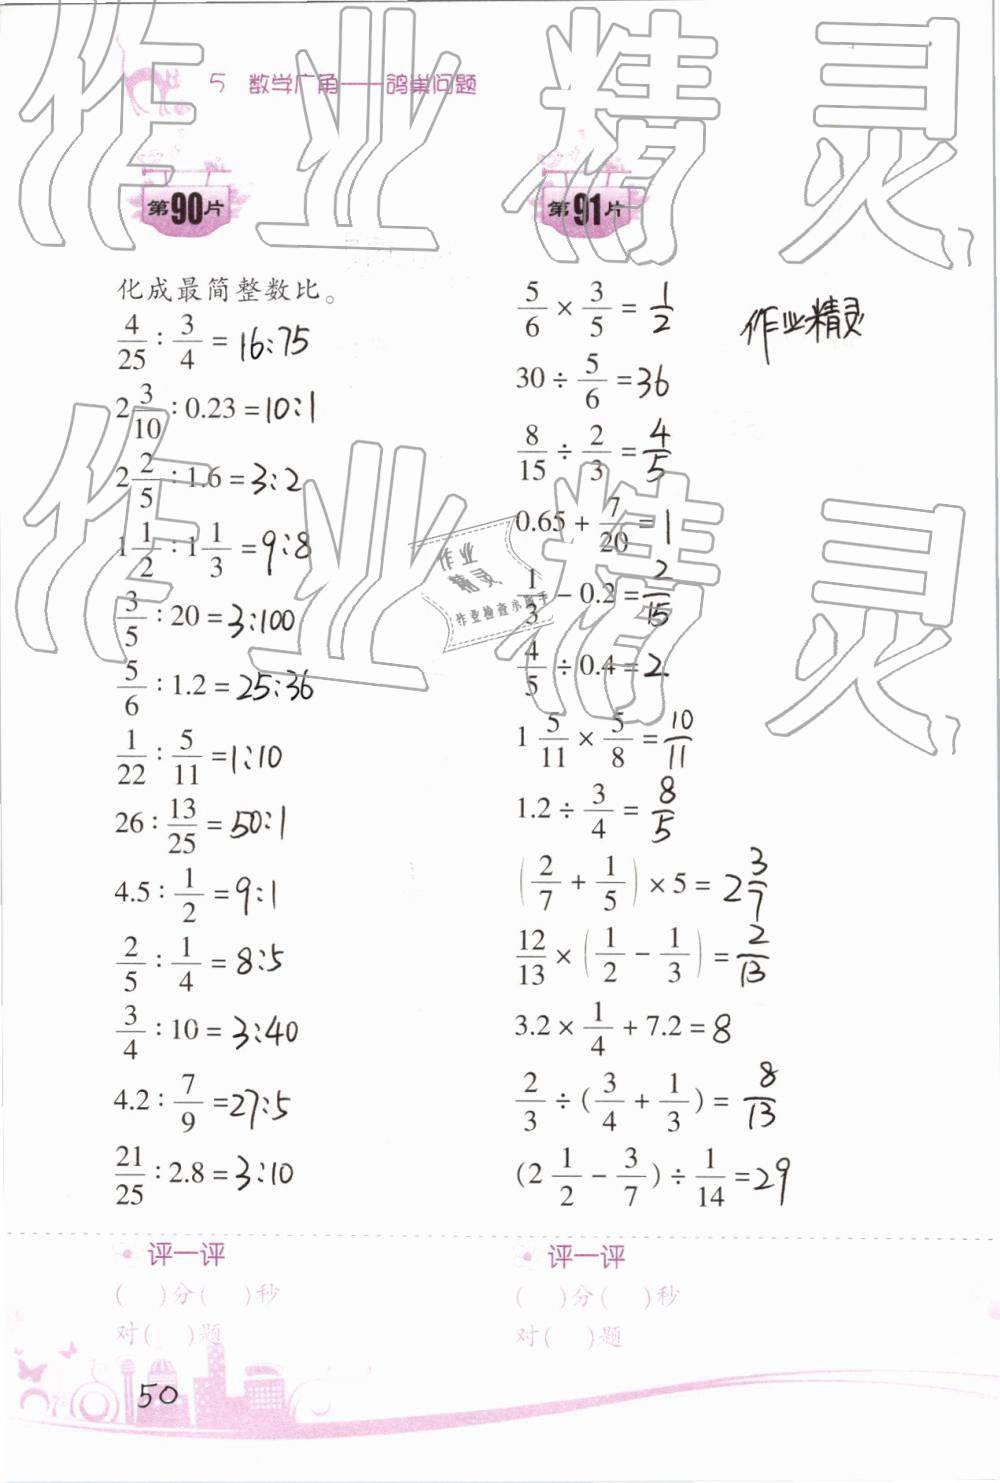 5 数学广角——鸽巢问题
第90片
化成最简整数比。
4/25 : 3/4 = 16:75
2 3/10 : 0.23 = 10:1
2 2/5 : 1.6 = 3:2
1 1/2 : 1 1/3 = 9:8
3/5 : 20 = 3:100
5/6 : 1.2 = 25:36
1/22 : 5/11 = 1:10
26 : 13/25 = 50:1
4.5 : 1/2 = 9:1
2/5 : 1/4 = 8:5
3/4 : 10 = 3:40
4.2 : 7/9 = 27:5
21/25 : 2.8 = 3:10
评一评
( )分( )秒
对( )题
第91片
5/6 × 3/5 = 1/2
作业精灵
30 ÷ 5/6 = 36
8/15 ÷ 2/3 = 4/5
0.65 + 7/20 = 1
1/3 - 0.2 = 2/15
4/5 ÷ 0.4 = 2
1 5/11 × 5/8 = 10/11
1.2 ÷ 3/4 = 8/5
(2/7 + 1/5) × 5 = 2 3/7
12/13 × (1/2 - 1/3) = 2/13
3.2 × 1/4 + 7.2 = 8
2/3 ÷ (3/4 + 1/3) = 8/13
(2 1/2 - 3/7) ÷ 1/14 = 29
评一评
( )分( )秒
对( )题
50
作业精灵
作业精灵
作业
精灵
作业检查小助手